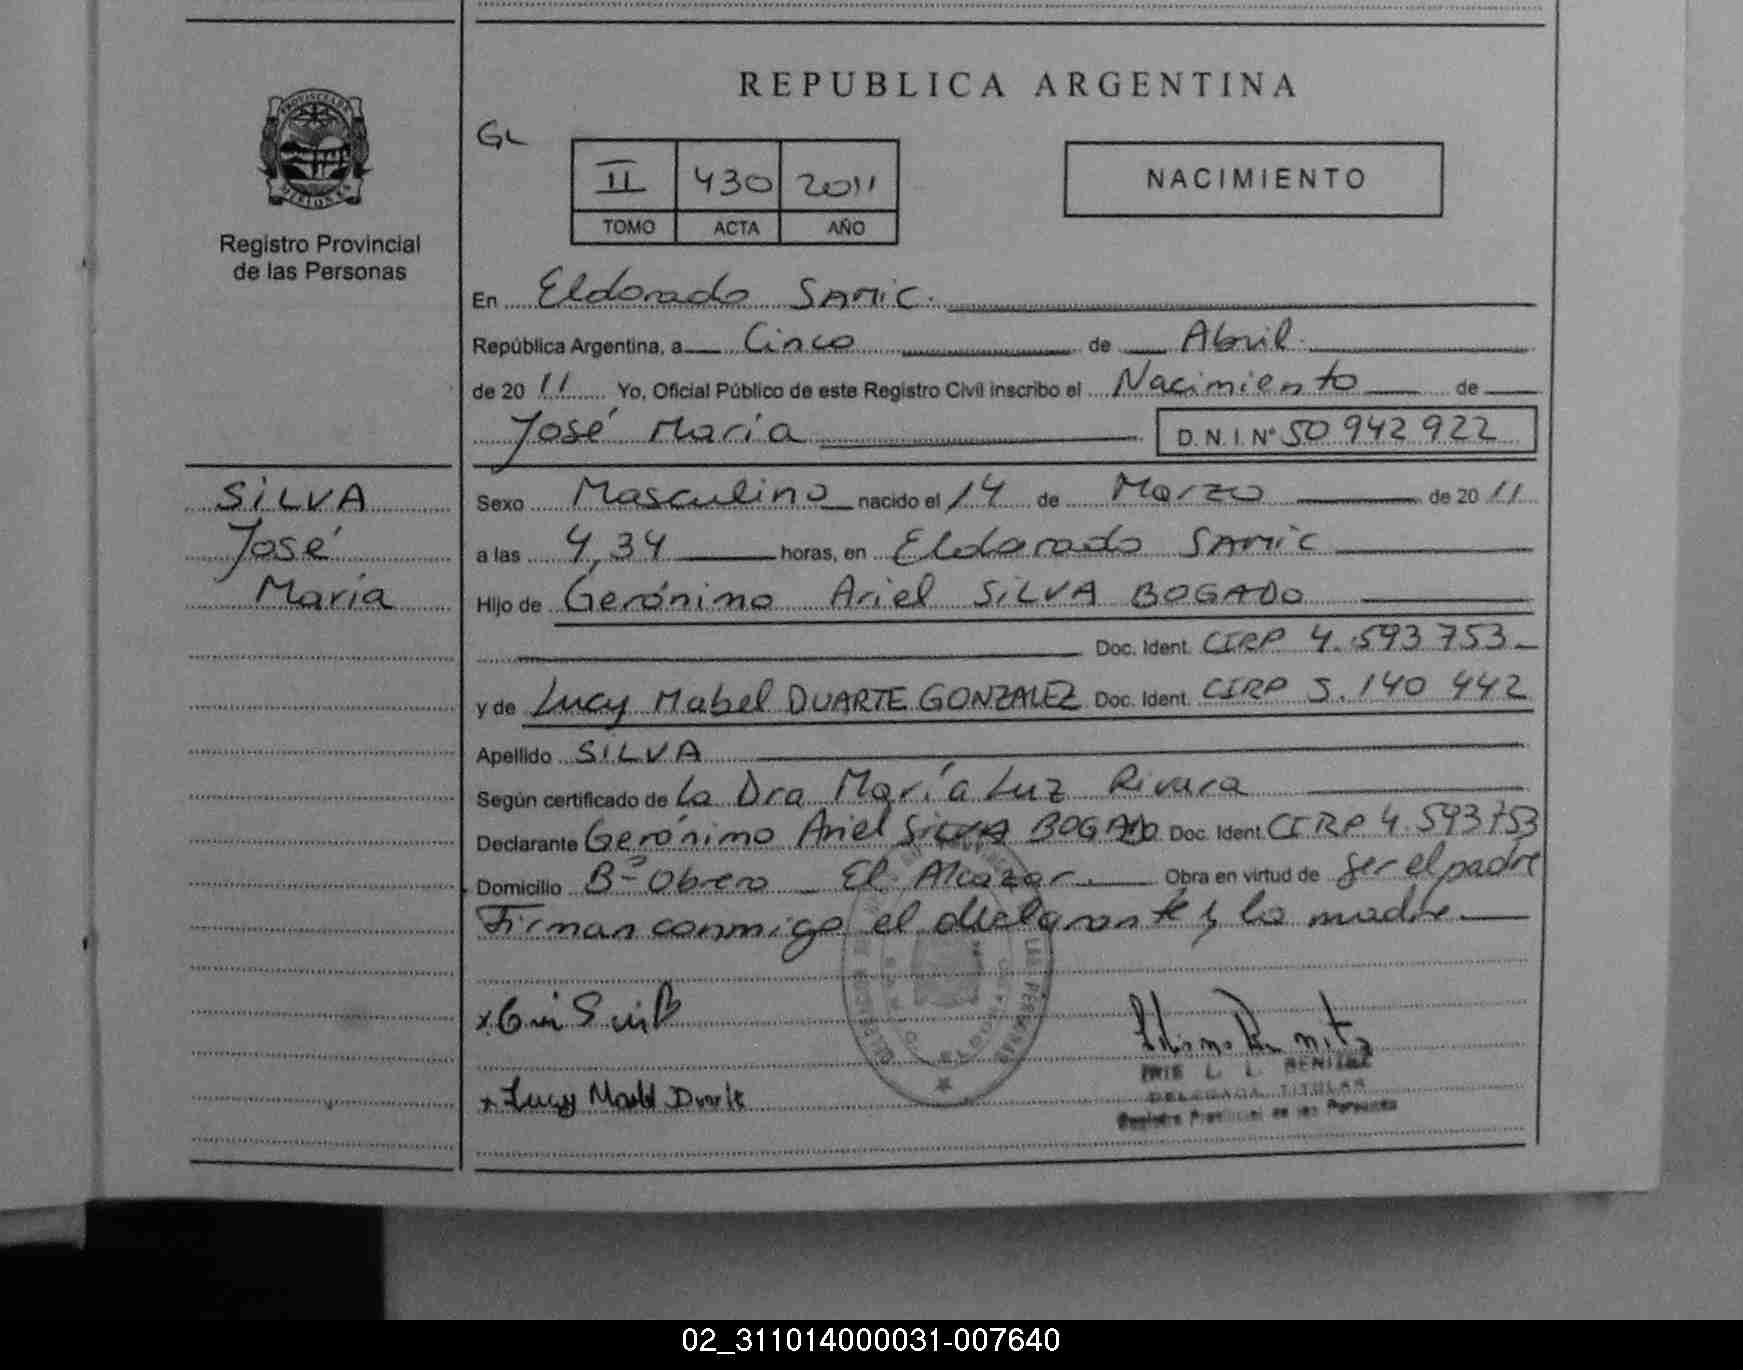 REPUBLICA ARGENTINA
GL
II 430 2011
TOMO ACTA AÑO
NACIMIENTO
PROVINCIA DE MISIONES
Registro Provincial
de las Personas
En Eldorado SAMIC.
República Argentina, a Cinco de Abril
de 2011 Yo, Oficial Público de este Registro Civil inscribo el Nacimiento de
José María D.N.I.Nº 50 942 922
SILVA
José
María
Sexo Masculino nacido el 14 de Marzo de 2011
a las 4,34 horas, en Eldorado SAMIC
Hijo de Gerónimo Ariel SILVA BOGADO
Doc. Ident. CIRP 4.593 753
y de Lucy Mabel DUARTE GONZALEZ Doc. Ident. CIRP 5.140 442
Apellido SILVA
Según certificado de La Dra María Luz Rivara
Declarante Gerónimo Ariel SILVA BOGADO Doc. Ident. CIRP 4.593753
Domicilio Bº Obrero El Alcazar Obra en virtud de ser el padre
Firman conmigo el declarante y la madre
x Lucy Mabel Duarte
IRIS L. L. BENITEZ
DELEGADA TITULAR
Registro Provincial de las Personas
02_311014000031-007640